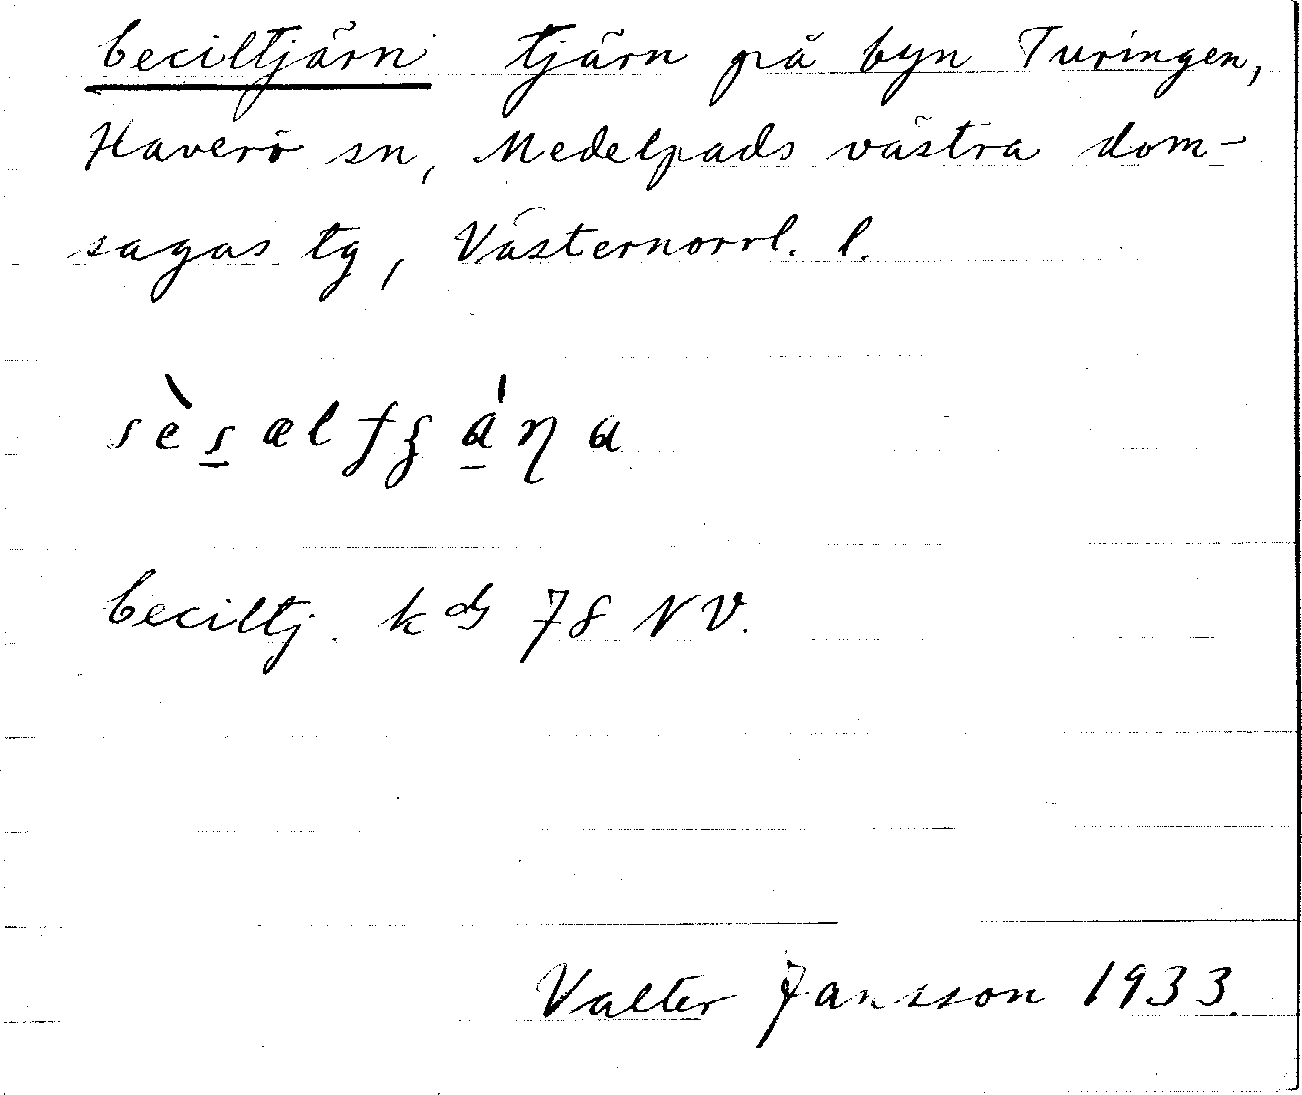 Ceciltjärn tjärn på byn Turingen,
Haverö sn, Medelpads västra dom-
sagas tg, Västernorrl. l.
Ceciltj. kds 78 NV.
Valter Jansson 1933.